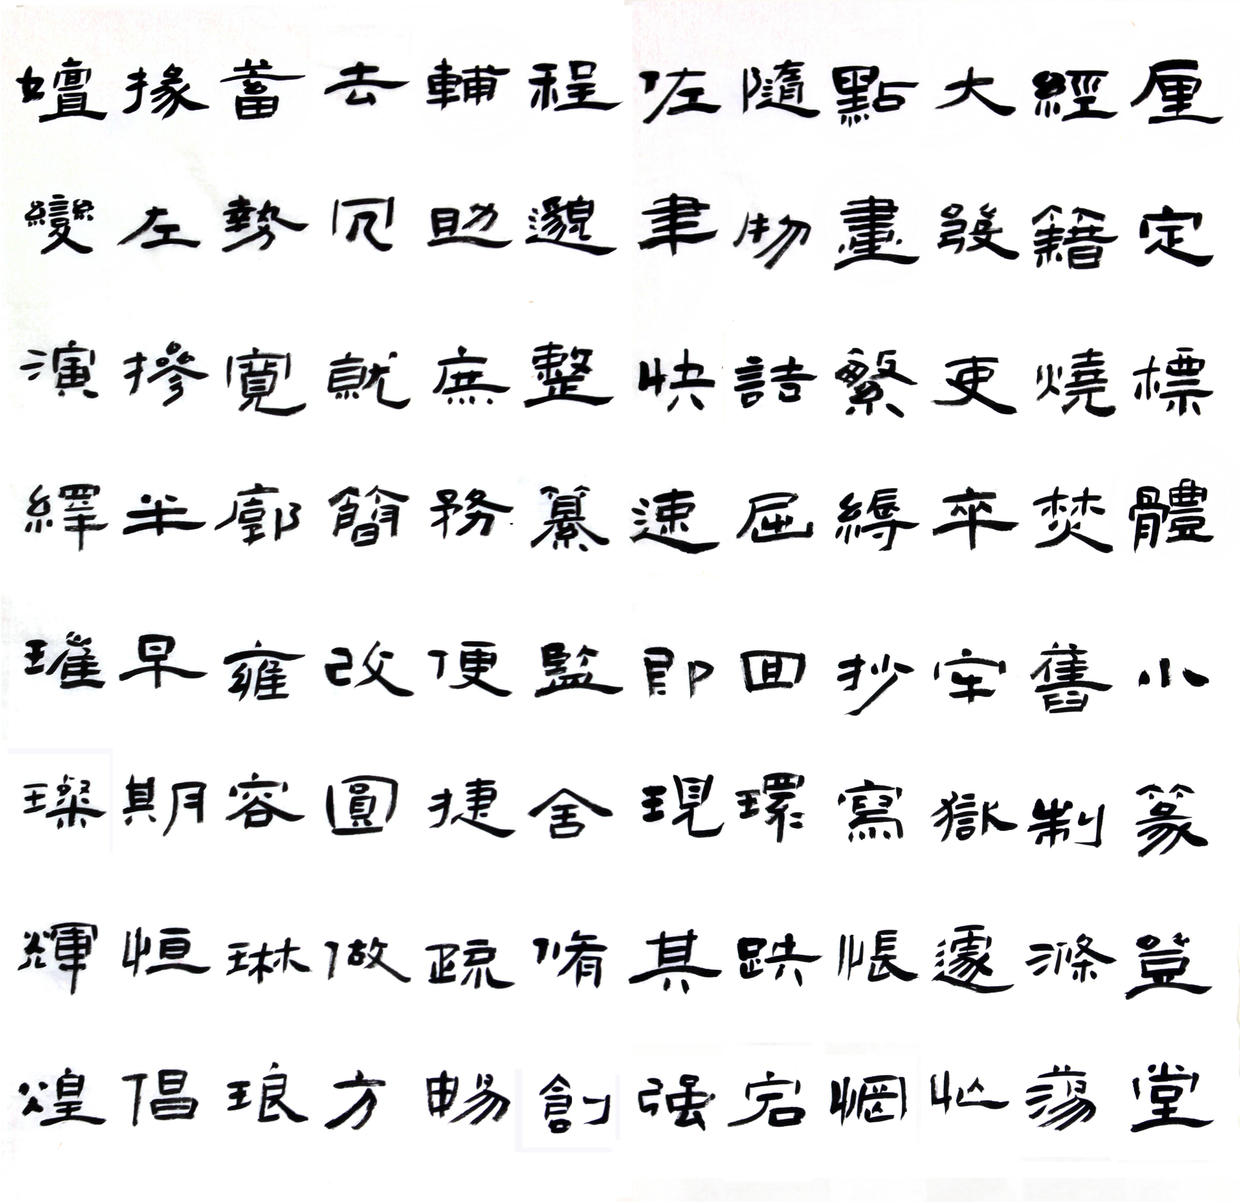 厘定標體小篆登堂
經籍燒焚舊制滌蕩
大發吏卒牢獄遽忙
點畫繁縟抄寫悵惘
隨物詰屈回環跌宕
佐聿快速即現其强
程邈整纂監舍脩創
輔助庶務便捷疏暢
去冗就簡改圓做方
蓄勢寬廓雍容琳琅
掾左摻半早期恒倡
嬗變演繹璀璨輝煌